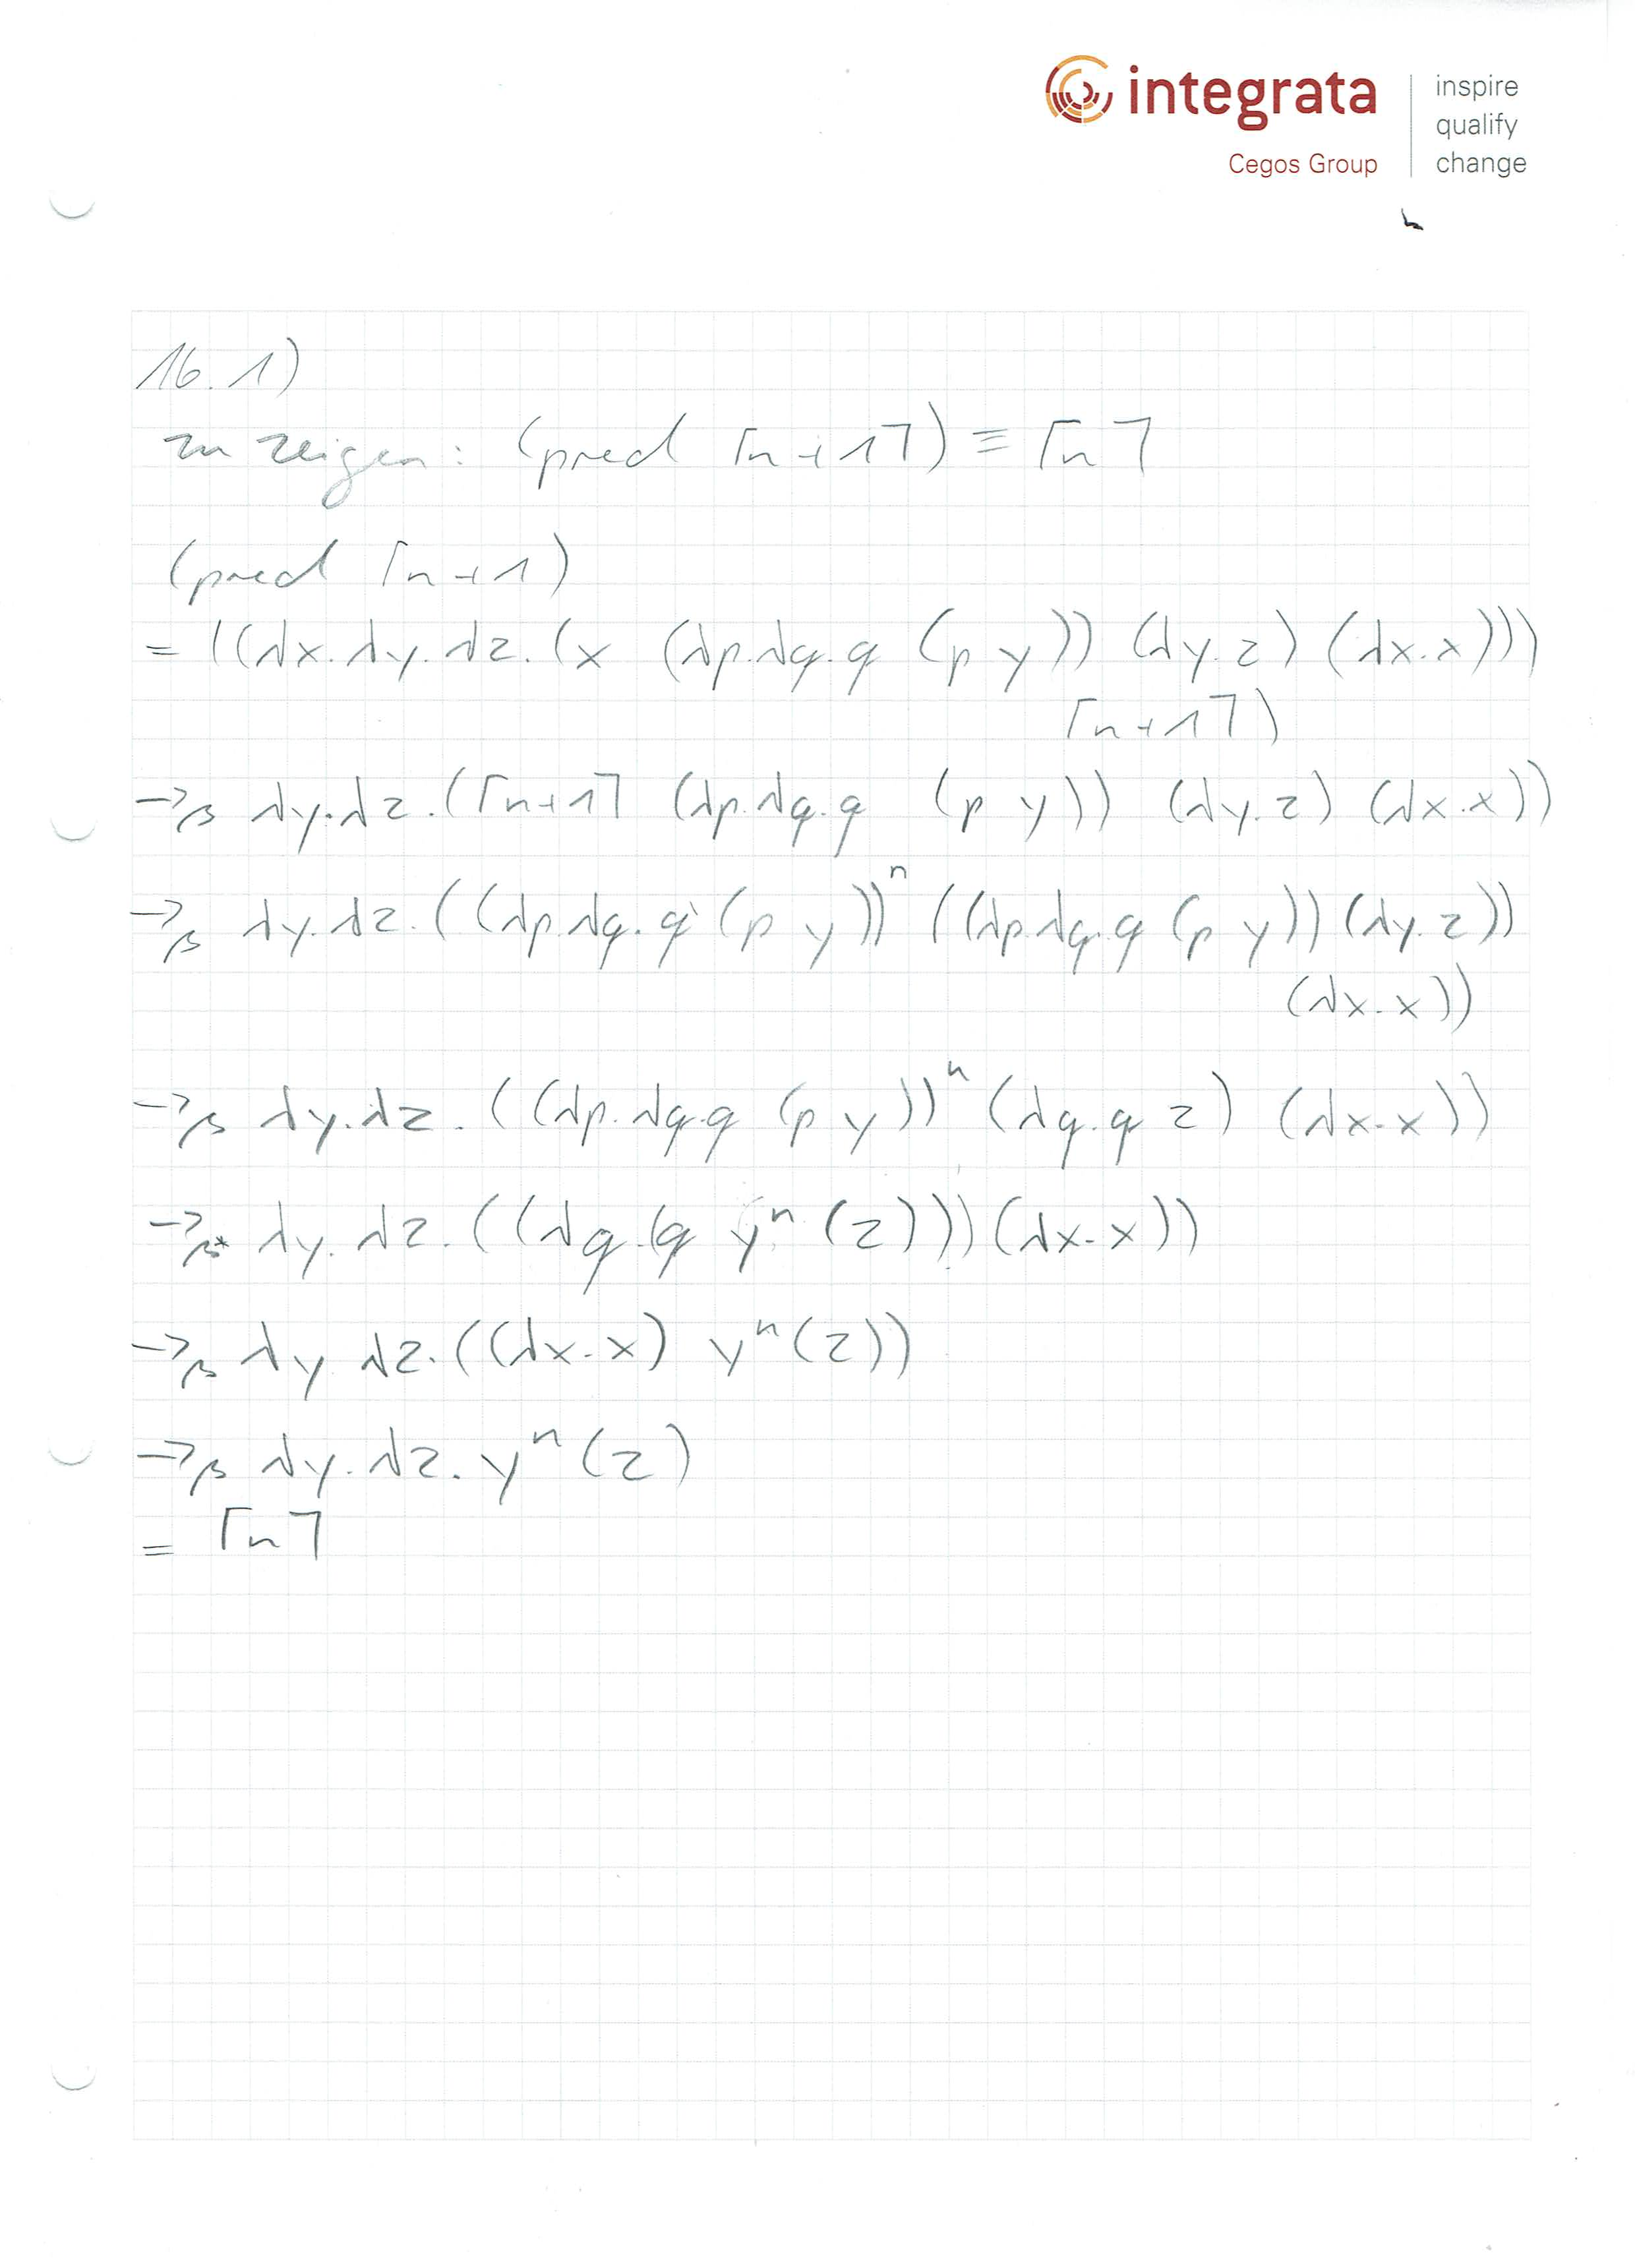 integrata
Cegos Group
inspire
qualify
change
16.1)
zu zeigen: (pred ⌈n+1⌉) ≡ ⌈n⌉
(pred ⌈n+1)
= ((λx.λy.λz.(x (λp.λq.q (p y)) (λy.z) (λx.x)))
⌈n+1⌉)
→β λy.λz.(⌈n+1⌉ (λp.λq.q (p y)) (λy.z) (λx.x))
→β λy.λz.((λp.λq.q (p y))ⁿ ((λp.λq.q (p y)) (λy.z))
(λx.x))
→β λy.λz.((λp.λq.q (p y))ⁿ (λq.q z) (λx.x))
→β* λy.λz.((λq.(q yⁿ (z)))(λx.x))
→β λy λz.((λx.x) yⁿ(z))
→β λy.λz.yⁿ(z)
= ⌈n⌉